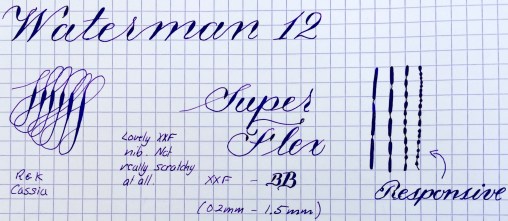 Waterman 12
Super
Flex
Lovely XXF
nib. Not
really scratchy
at all
R&K
Cassia
XXF - BB
(0.2mm - 1.5mm)
Responsive